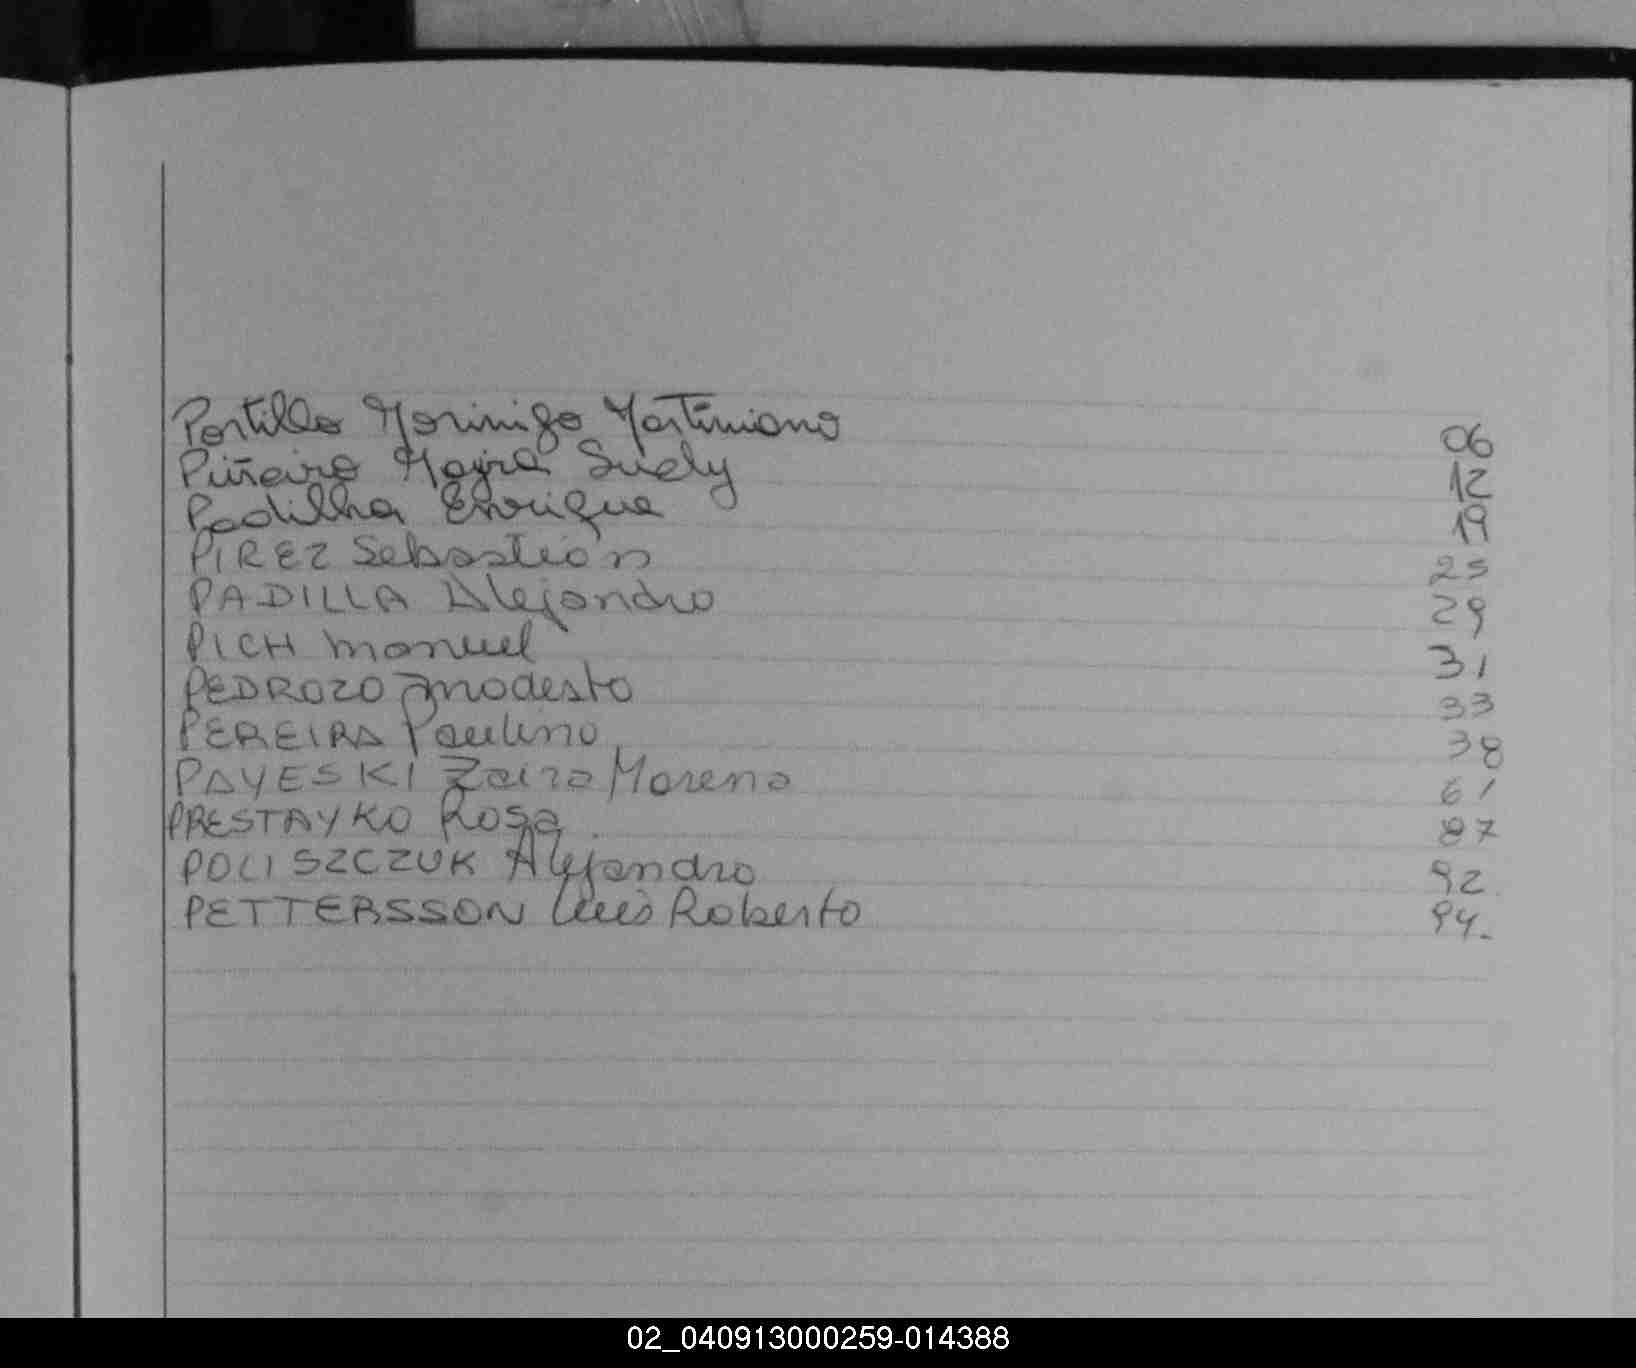 Portillo Morinigo Martiniano 06
Piñeiro Mayra Suely 12
Padilha Enrique 19
PIREZ Sebastión 25
PADILLA Alejandro 29
PICH Manuel 31
PEDROZO Modesto 33
PEREIRA Paulino 38
PAYESKI Zaira Morena 61
PRESTAYKO Rosa 87
POLISZCZUK Alejandro 92
PETTERSSON Luis Roberto 94.
02_040913000259-014388